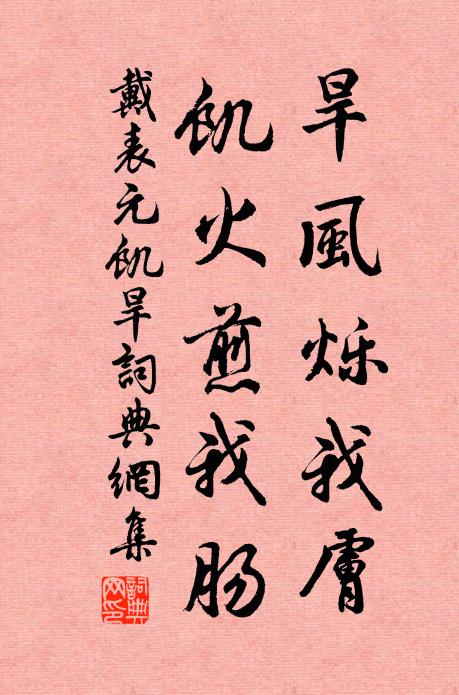 旱風烁我膚
飢火煎我肠
戴表元飢旱詞典網集
詞典网印